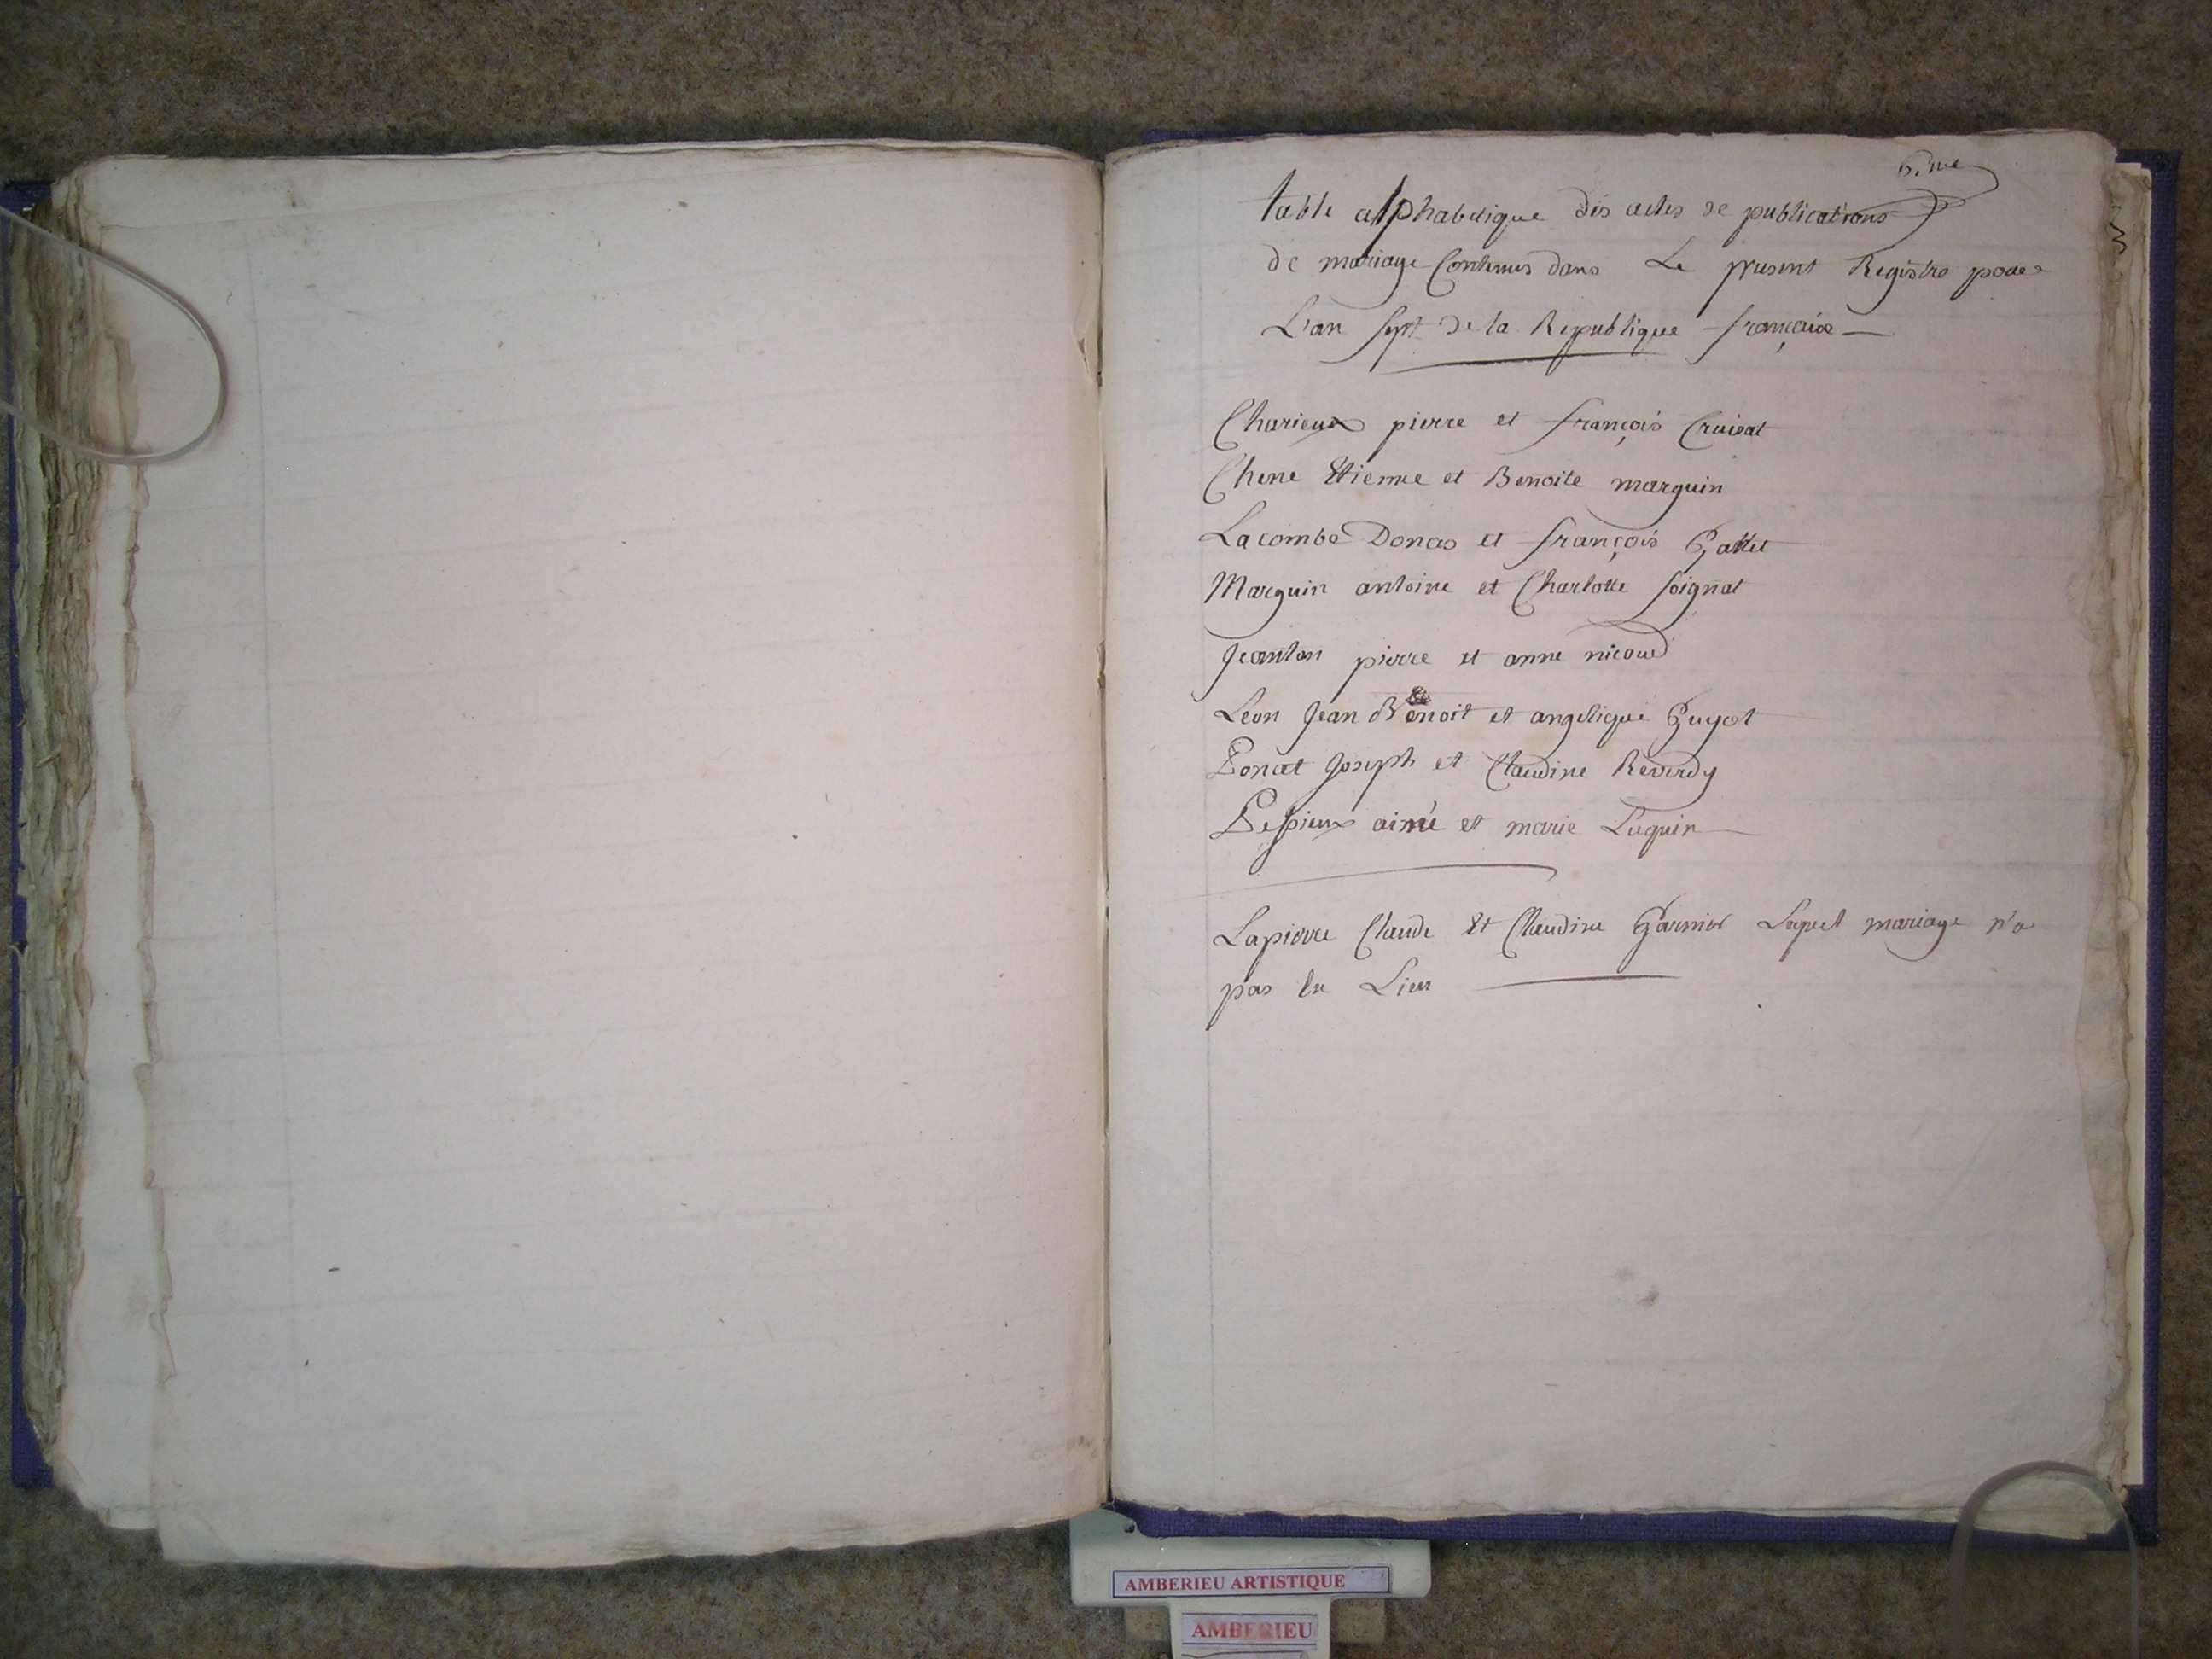 6.me
table alphabetique des actes de publications
de mariage Contenus dans Le present Registre pour
L'an sept de la Republique française
Charieux pierre et françois Cruisat
Chene Etienne et Benoite marguin
Lacombe Donas et françois Gallet
Marguin antoine et Charlotte soignat
Jeanton pierre et anne nicoud
Leon Jean Benoit et angelique Guyot
Poncet Joseph et Claudine Reverdy
aimé et marie Luquin
Lapierre Claude Et Claudine Garnier Lequel mariage n'a
pas Eu Lieu
AMBERIEU ARTISTIQUE
AMBERIEU